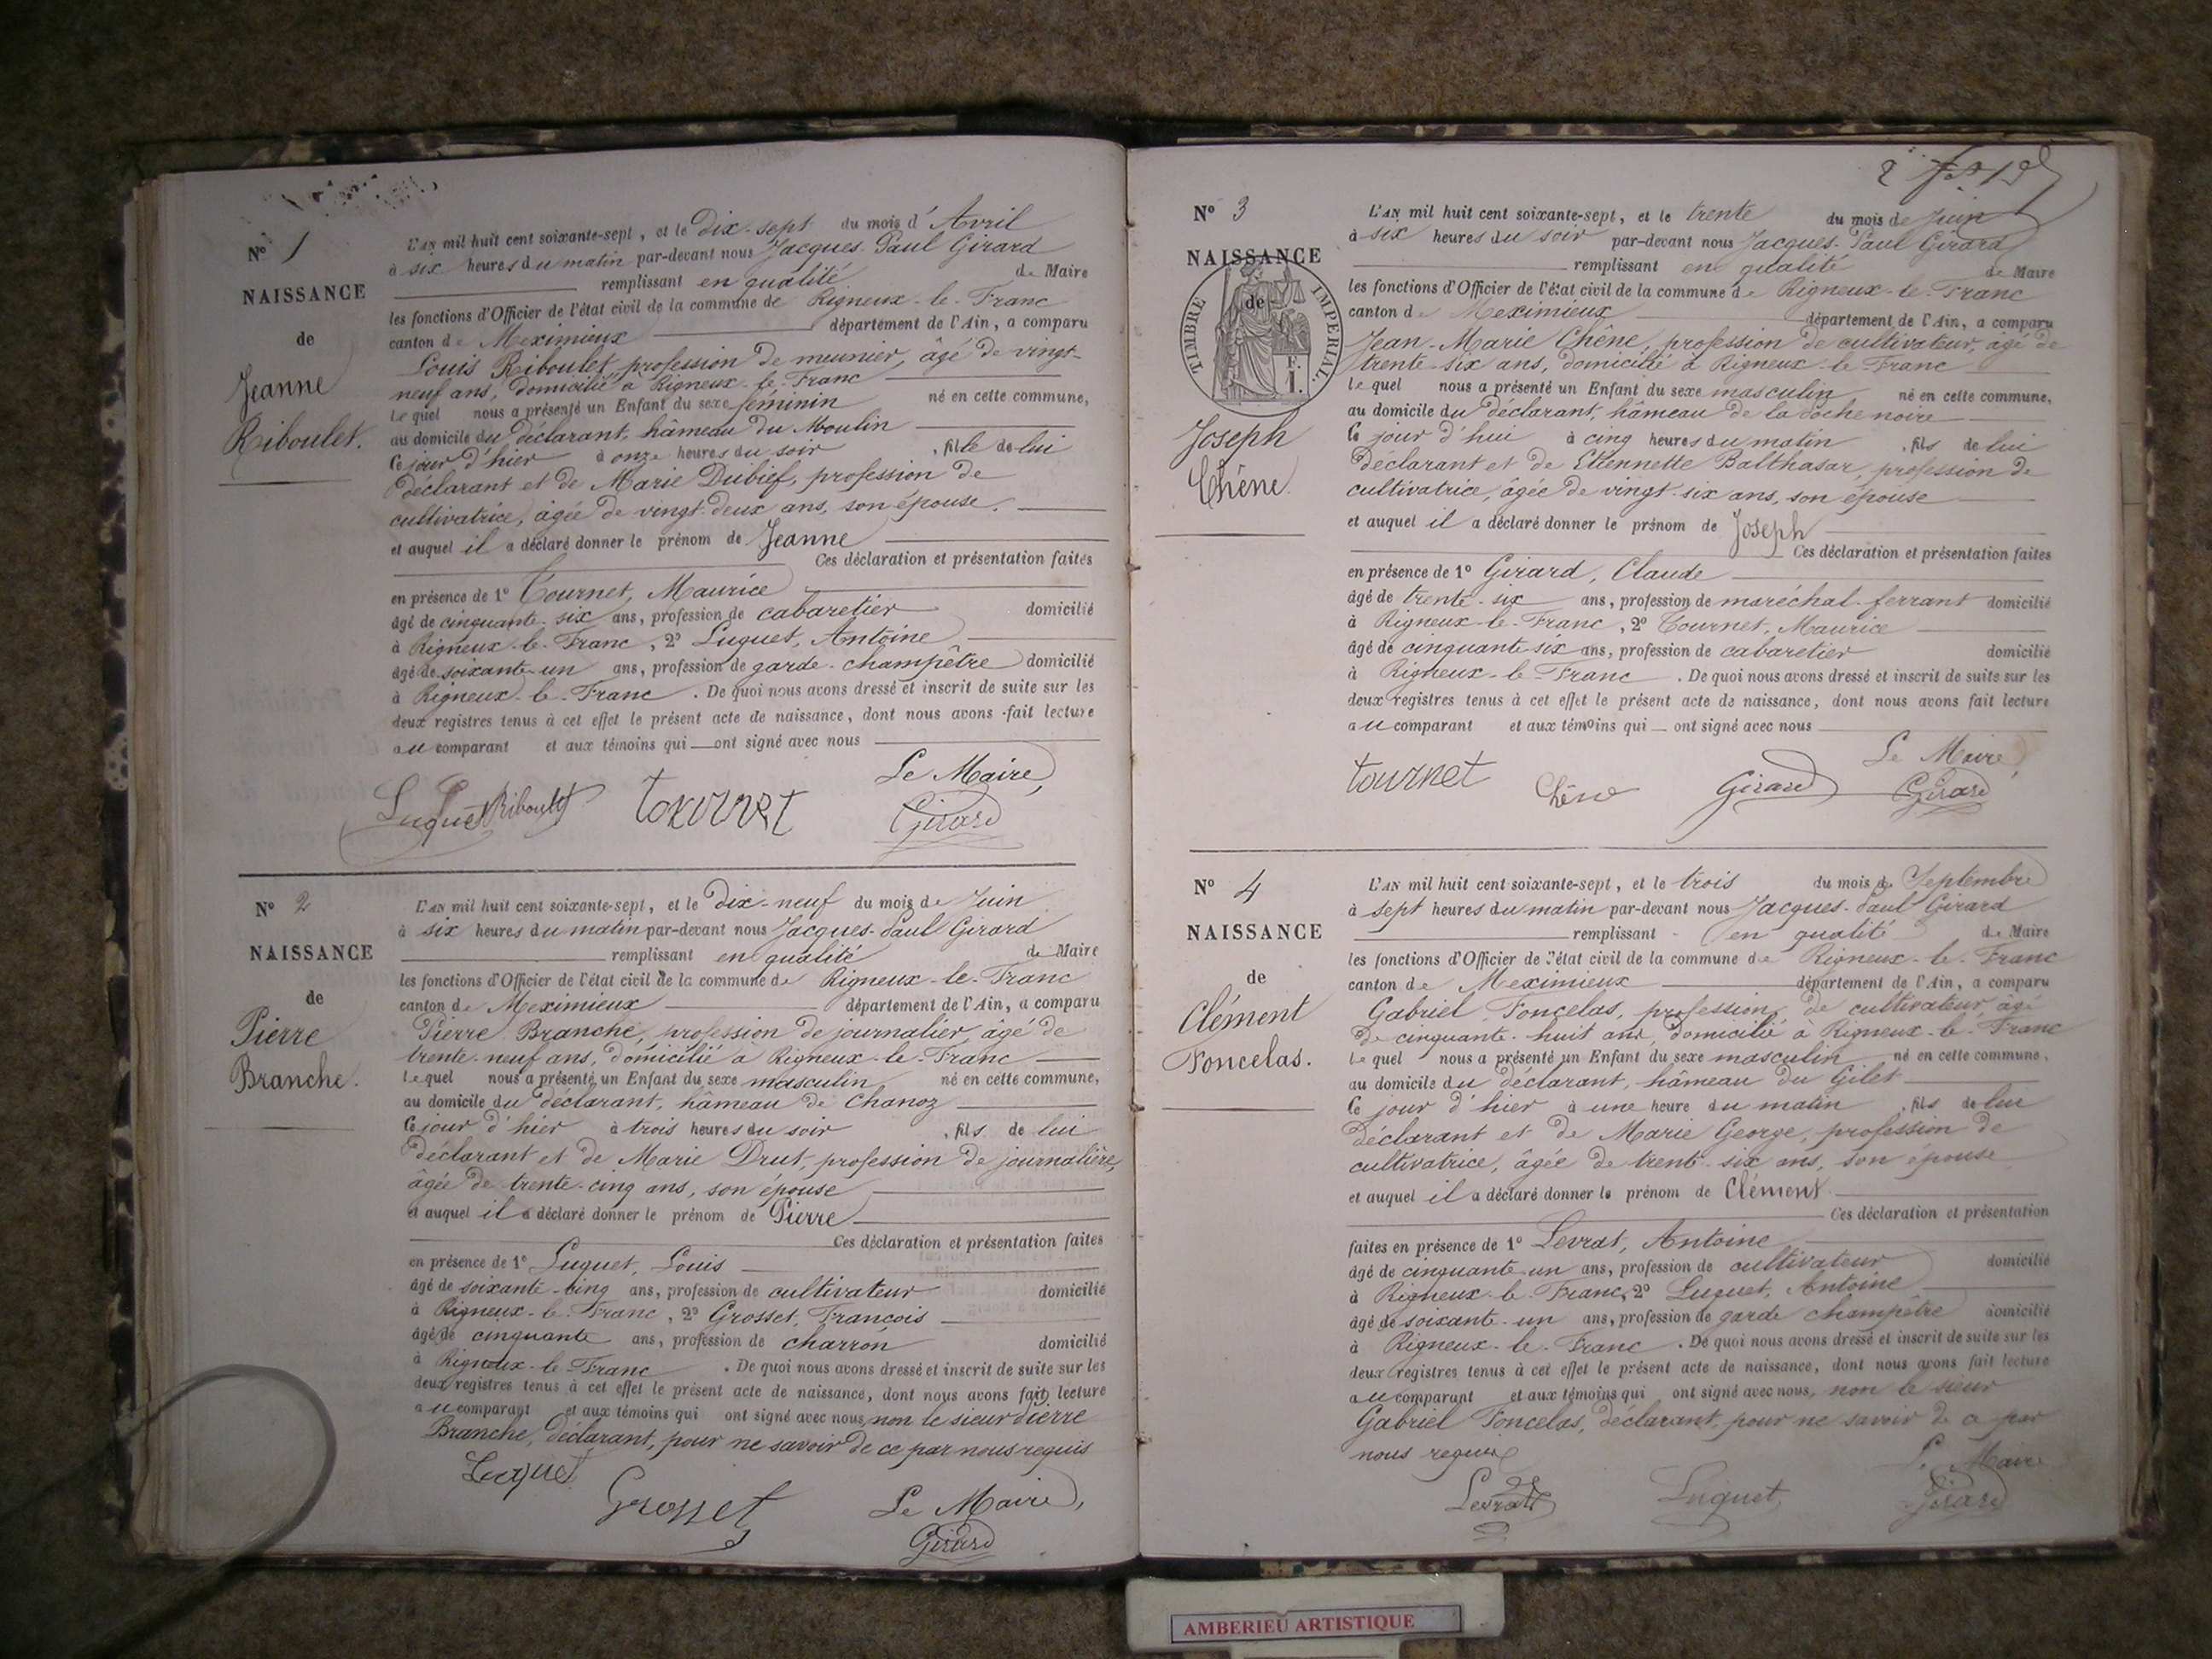 N° 1
NAISSANCE
de
Jeanne
Riboulet.
L'AN mil huit cent soixante-sept, et le Dix-sept du mois d'Avril
à six heures du matin par-devant nous Jacques-Paul Girard
remplissant en qualité de Maire
les fonctions d'Officier de l'état civil de la commune de Rigneux-le-Franc
canton de Meximieux département de l'Ain, a comparu
Louis Riboulet, profession de meunier, âgé de vingt-
neuf ans, domicilié à Rigneux-le-Franc
Lequel nous a présenté un Enfant du sexe féminin né en cette commune,
au domicile du déclarant, hâmeau du Moulin
le jour d'hier à onze heures du soir, fille de lui
déclarant et de Marie Dubief, profession de
cultivatrice, âgée de vingt-deux ans, son épouse.
et auquel il a déclaré donner le prénom de Jeanne
Ces déclaration et présentation faites
en présence de 1° Tournet, Maurice
âgé de cinquante-six ans, profession de cabaretier domicilié
à Rigneux-le-Franc, 2° Luquet, Antoine
âgé de soixante-un ans, profession de garde-champêtre domicilié
à Rigneux-le-Franc. De quoi nous avons dressé et inscrit de suite sur les
deux registres tenus à cet effet le présent acte de naissance, dont nous avons fait lecture
au comparant et aux témoins qui ont signé avec nous
Le Maire,
Luquet Riboulet tournet Girard
N° 2
NAISSANCE
de
Pierre
Branche.
L'AN mil huit cent soixante-sept, et le Dix-neuf du mois de Juin
à six heures du matin par-devant nous Jacques-Paul Girard
remplissant en qualité de Maire
les fonctions d'Officier de l'état civil de la commune de Rigneux-le-Franc
canton de Meximieux département de l'Ain, a comparu
Pierre Branche, profession de journalier, âgé de
trente-neuf ans, domicilié à Rigneux-le-Franc
Lequel nous a présenté un Enfant du sexe masculin né en cette commune,
au domicile du déclarant, hâmeau de Chanoz
le jour d'hier à trois heures du soir, fils de lui
déclarant et de Marie Drut, profession de journalière,
âgée de trente-cinq ans, son épouse
et auquel il a déclaré donner le prénom de Pierre
Ces déclaration et présentation faites
en présence de 1° Luquet, Louis
âgé de soixante-cinq ans, profession de cultivateur domicilié
à Rigneux-le-Franc, 2° Grosset, François
âgé de cinquante ans, profession de charron domicilié
à Rigneux-le-Franc. De quoi nous avons dressé et inscrit de suite sur les
deux registres tenus à cet effet le présent acte de naissance, dont nous avons fait lecture
au comparant et aux témoins qui ont signé avec nous, non le sieur Pierre
Branche, déclarant, pour ne savoir de ce par nous requis
Luquet
Grosset Le Maire,
Girard
N° 3
NAISSANCE
de
TIMBRE IMPERIAL
F.
1.
Joseph
Chêne.
L'AN mil huit cent soixante-sept, et le trente du mois de Juin
à six heures du soir par-devant nous Jacques-Paul Girard
remplissant en qualité de Maire
les fonctions d'Officier de l'état civil de la commune de Rigneux-le-Franc
canton de Meximieux département de l'Ain, a comparu
Jean-Marie Chêne, profession de cultivateur, âgé de
trente-six ans, domicilié à Rigneux-le-Franc
Lequel nous a présenté un Enfant du sexe masculin né en cette commune,
au domicile du déclarant, hâmeau de la noire
le jour d'hui à cinq heures du matin, fils de lui
déclarant et de Etiennette Balthasar, profession de
cultivatrice, âgée de vingt-six ans, son épouse
et auquel il a déclaré donner le prénom de Joseph
Ces déclaration et présentation faites
en présence de 1° Girard, Claude
âgé de trente-six ans, profession de maréchal-ferrant domicilié
à Rigneux-le-Franc, 2° Tournet, Maurice
âgé de cinquante-six ans, profession de cabaretier domicilié
à Rigneux-le-Franc. De quoi nous avons dressé et inscrit de suite sur les
deux registres tenus à cet effet le présent acte de naissance, dont nous avons fait lecture
au comparant et aux témoins qui ont signé avec nous
Le Maire,
tournet Chêne Girard Girard
N° 4
NAISSANCE
de
Clément
Foncelas.
L'AN mil huit cent soixante-sept, et le trois du mois de Septembre
à sept heures du matin par-devant nous Jacques-Paul Girard
remplissant en qualité de Maire
les fonctions d'Officier de l'état civil de la commune de Rigneux-le-Franc
canton de Meximieux département de l'Ain, a comparu
Gabriel Foncelas, profession de cultivateur, âgé
de cinquante-huit ans, domicilié à Rigneux-le-Franc
Lequel nous a présenté un Enfant du sexe masculin né en cette commune,
au domicile du déclarant, hâmeau du Gilet
le jour d'hier à une heure du matin, fils de lui
déclarant et de Marie George, profession de
cultivatrice, âgée de trente-six ans, son épouse
et auquel il a déclaré donner le prénom de Clément
Ces déclaration et présentation
faites en présence de 1° Levrat, Antoine
âgé de cinquante-un ans, profession de cultivateur domicilié
à Rigneux-le-Franc, 2° Luquet, Antoine
âgé de soixante-un ans, profession de garde champêtre domicilié
à Rigneux-le-Franc. De quoi nous avons dressé et inscrit de suite sur les
deux registres tenus à cet effet le présent acte de naissance, dont nous avons fait lecture
au comparant et aux témoins qui ont signé avec nous, non le sieur
Gabriel Foncelas, déclarant, pour ne savoir de ce par
nous requis
Le Maire
Levrat Luquet Girard
AMBERIEU ARTISTIQUE